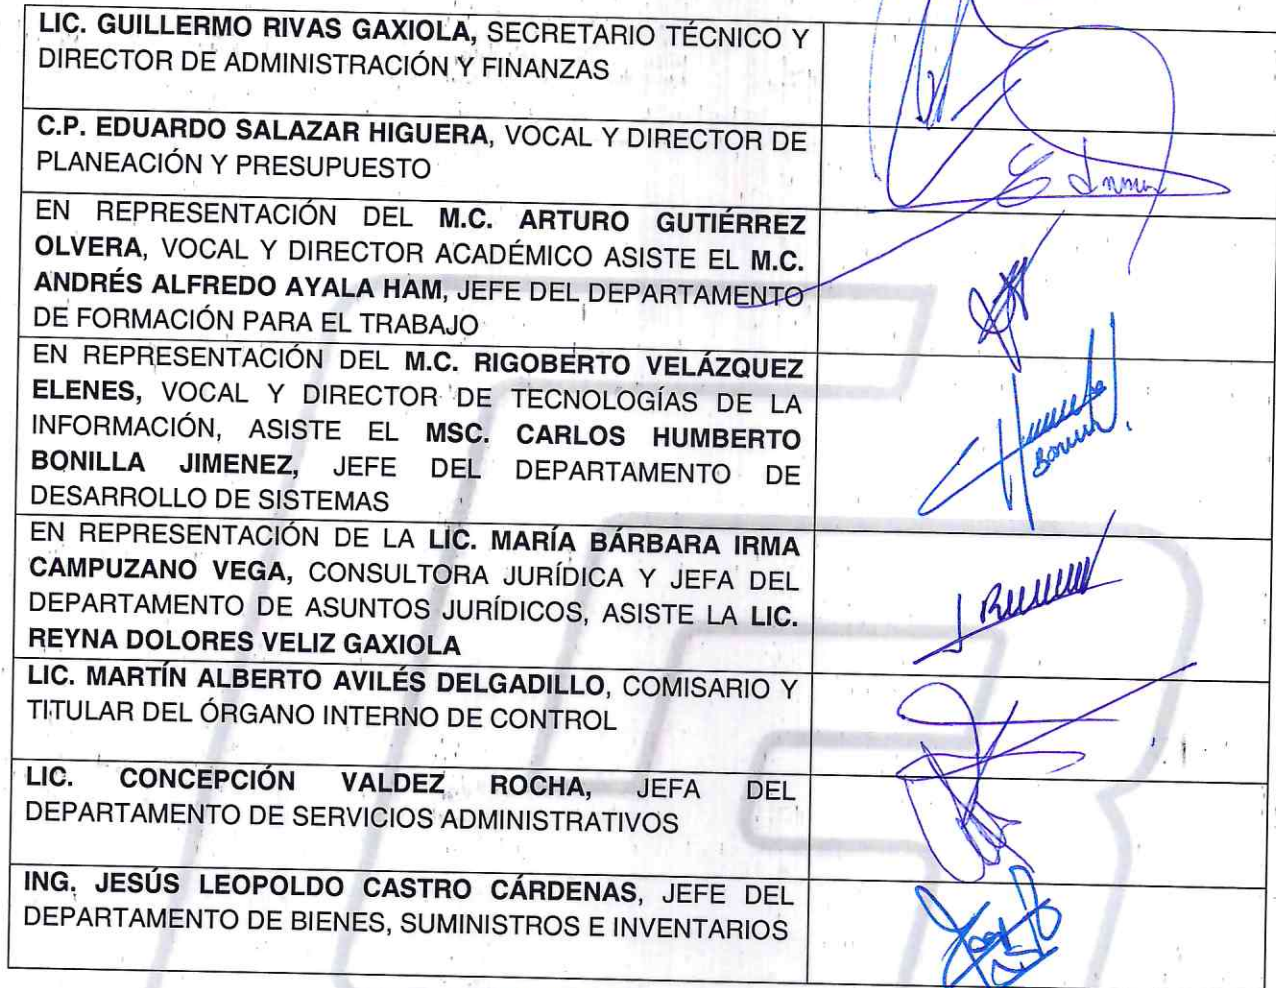 LIC. GUILLERMO RIVAS GAXIOLA, SECRETARIO TÉCNICO Y
DIRECTOR DE ADMINISTRACIÓN Y FINANZAS
C.P. EDUARDO SALAZAR HIGUERA, VOCAL Y DIRECTOR DE
PLANEACIÓN Y PRESUPUESTO
EN REPRESENTACIÓN DEL M.C. ARTURO GUTIÉRREZ
OLVERA, VOCAL Y DIRECTOR ACADÉMICO ASISTE EL M.C.
ANDRÉS ALFREDO AYALA HAM, JEFE DEL DEPARTAMENTO
DE FORMACIÓN PARA EL TRABAJO
EN REPRESENTACIÓN DEL M.C. RIGOBERTO VELÁZQUEZ
ELENES, VOCAL Y DIRECTOR DE TECNOLOGÍAS DE LA
INFORMACIÓN, ASISTE EL MSC. CARLOS HUMBERTO
BONILLA JIMENEZ, JEFE DEL DEPARTAMENTO DE
DESARROLLO DE SISTEMAS
EN REPRESENTACIÓN DE LA LIC. MARÍA BÁRBARA IRMA
CAMPUZANO VEGA, CONSULTORA JURÍDICA Y JEFA DEL
DEPARTAMENTO DE ASUNTOS JURÍDICOS, ASISTE LA LIC.
REYNA DOLORES VELIZ GAXIOLA
LIC. MARTÍN ALBERTO AVILÉS DELGADILLO, COMISARIO Y
TITULAR DEL ÓRGANO INTERNO DE CONTROL
LIC. CONCEPCIÓN VALDEZ ROCHA, JEFA DEL
DEPARTAMENTO DE SERVICIOS ADMINISTRATIVOS
ING. JESÚS LEOPOLDO CASTRO CÁRDENAS, JEFE DEL
DEPARTAMENTO DE BIENES, SUMINISTROS E INVENTARIOS